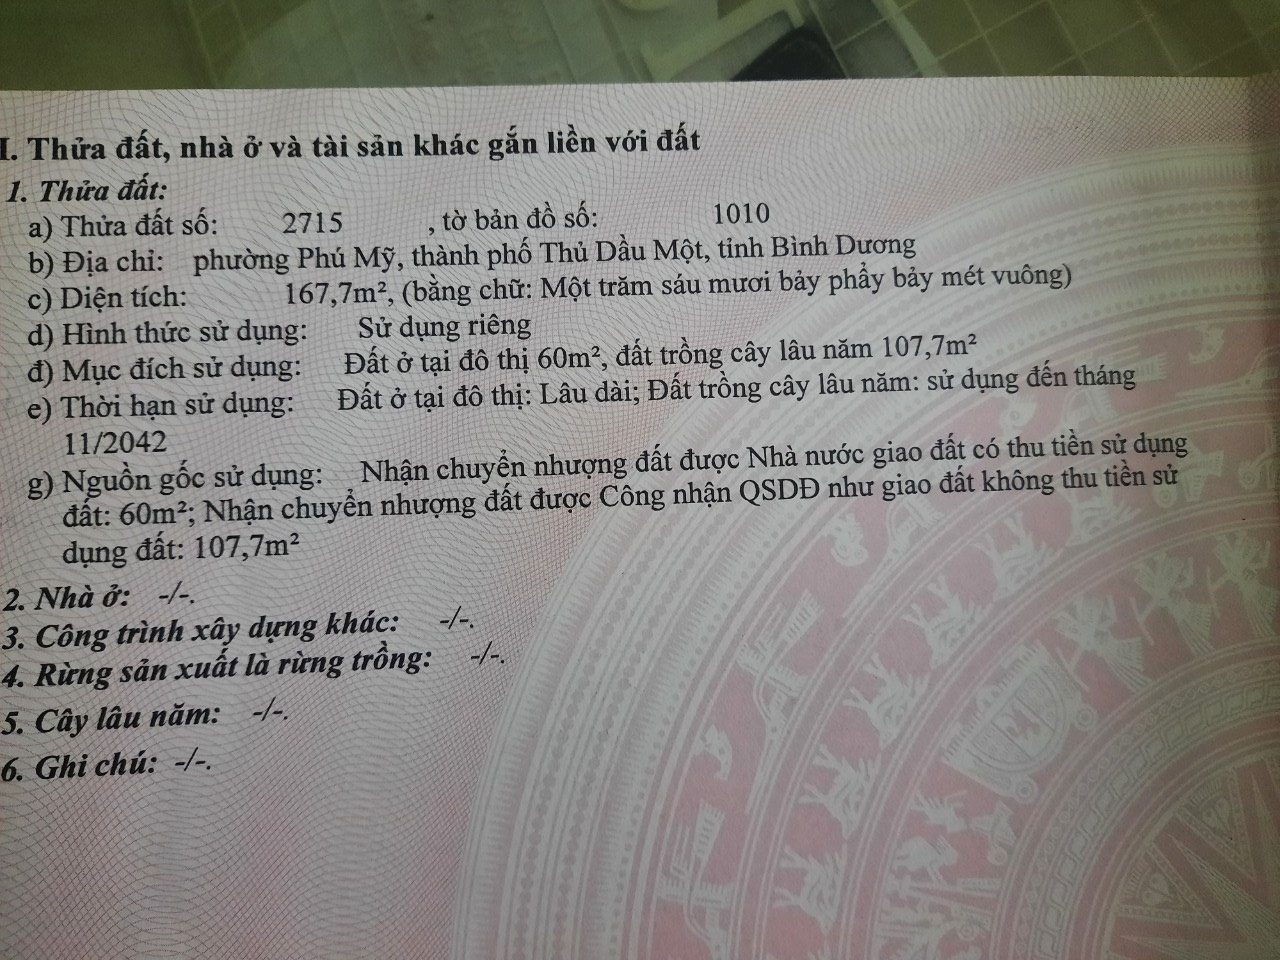 I. Thửa đất, nhà ở và tài sản khác gắn liền với đất
1. Thửa đất:
a) Thửa đất số: 2715 , tờ bản đồ số: 1010
b) Địa chỉ: phường Phú Mỹ, thành phố Thủ Dầu Một, tỉnh Bình Dương
c) Diện tích: 167,7m², (bằng chữ: Một trăm sáu mươi bảy phẩy bảy mét vuông)
d) Hình thức sử dụng: Sử dụng riêng
đ) Mục đích sử dụng: Đất ở tại đô thị 60m², đất trồng cây lâu năm 107,7m²
e) Thời hạn sử dụng: Đất ở tại đô thị: Lâu dài; Đất trồng cây lâu năm: sử dụng đến tháng
11/2042
g) Nguồn gốc sử dụng: Nhận chuyển nhượng đất được Nhà nước giao đất có thu tiền sử dụng
đất: 60m²; Nhận chuyển nhượng đất được Công nhận QSDĐ như giao đất không thu tiền sử
dụng đất: 107,7m²
2. Nhà ở: -/-.
3. Công trình xây dựng khác: -/-.
4. Rừng sản xuất là rừng trồng: -/-.
5. Cây lâu năm: -/-.
6. Ghi chú: -/-.